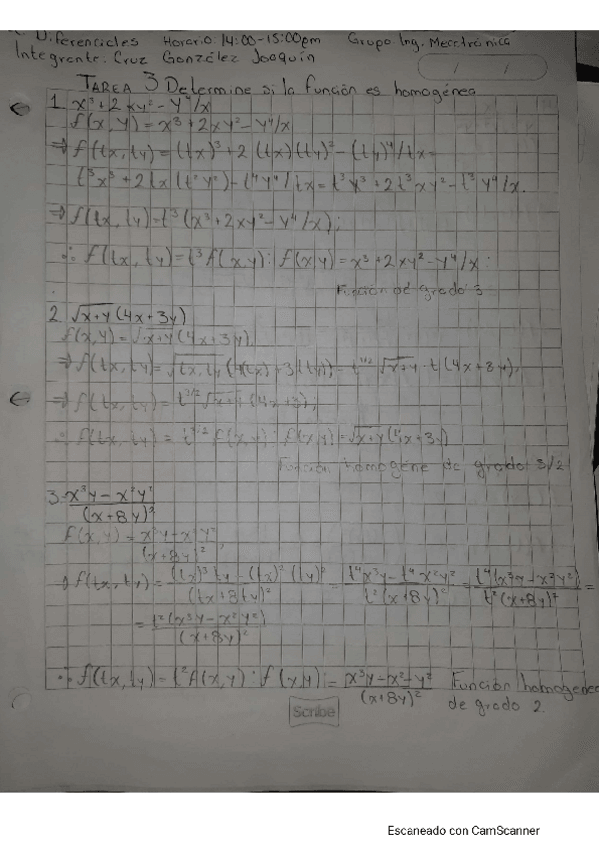 Diferenciales Horario: 14:00-15:00pm Grupo Ing. Mecctrónica
Integrante: Cruz González Joaquín
TAREA 3 Determine si la función es homogénea
1. x³+2xy²-y⁴/x
f(x,y)=x³+2xy²-y⁴/x
⇒ f(tx,ty)=(tx)³+2(tx)(ty)²-(ty)⁴/tx=
t³x³+2tx(t²y²)-t⁴y⁴/tx=t³y³+2t³xy²-t³y⁴/x.
⇒ f(tx,ty)=t³(x³+2xy²-y⁴/x);
∴ f(tx,ty)=t³f(x,y): f(x,y)=x³+2xy²-y⁴/x.
Función de grado 3
2. √x+y(4x+3y)
f(x,y)=√x+y(4x+3y)
⇒ f(tx,ty)=√tx,ty(4(tx)+3(ty))=t^1/2√x+y·t(4x+8y),
⇒ f(tx,ty)=t^3/2√x+y(4x+3);
∴ f(tx,ty)=t^3/2 f(x,y): f(x,y)=√x+y(4x+3y)
Función homogéne de grado: 3/2
3. x³y-x²y²/(x+8y)²
f(x,y)=x³y-x²y²/(x+8y)²,
⇒ f(tx,ty)=(tx)³ty-(tx)²(ty)²/(tx+8ty)²=t⁴x³y-t⁴x²y²/t²(x+8y)²=t⁴(x³y-x²y²)/t²(x+8y)²=
=t²(x³y-x²y²)/(x+8y)²
∴ f(tx,ty)=t²f(x,y): f(x,y)=x³y-x²-y²/(x+8y)² Función homogénea
de grado 2.
Scribe
Escaneado con CamScanner